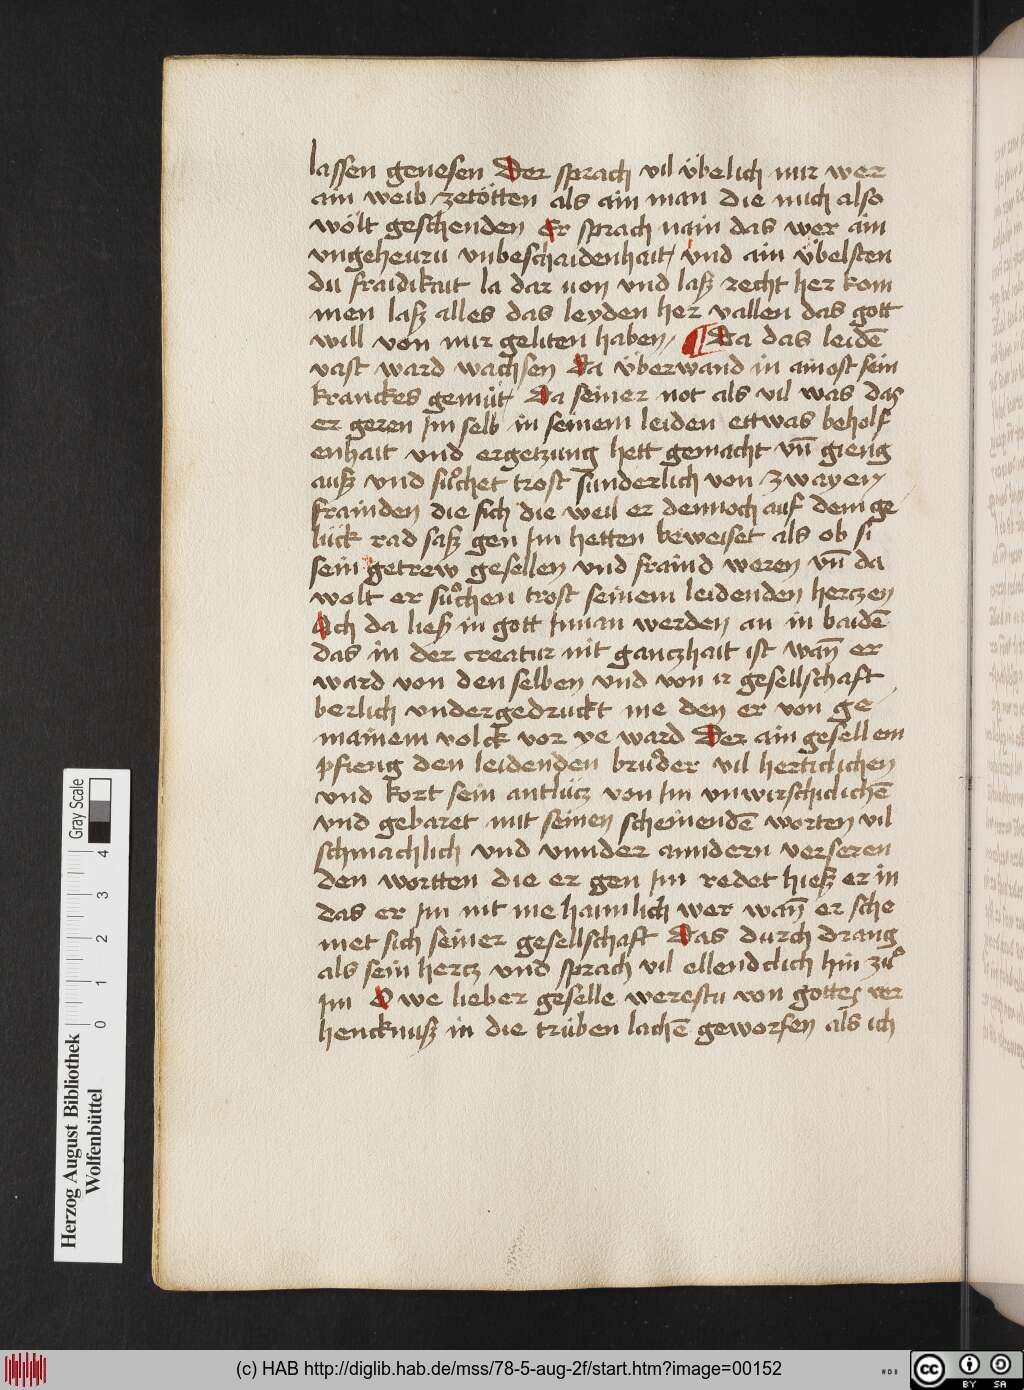 lassen genesen Der sprach vil übelich mir wer
ain weib zetötten als ain man die mich also
wölt geschenden Er sprach nain das wer ain
vngeheuru vnbeschaidenhait / vnd ain übelsten
du fraidikait la dar von vnd laß recht her kom
men laß alles das leyden her vallen das gott
will von mir geliten haben / ¶ Da das leidē
vast ward wachsen Da überwand in ainost sein
kranckes gemüt / Da seiner not als vil was das
er geren Im selb in seinem leiden ettwas beholf
enhait vnd ergetzung hett gemacht vn̄ gieng
auß vnd suͦchet trost sunderlich von zwayen
frainden die sich die weil er dennoch auf dem ge
lück rad saß gen Im hetten beweiset als ob si
sein getrew gesellen vnd fraind weren vn̄ da
wolt er suͦchen trost seinem leidenden hertzen
Och da ließ in gott Innan werden an in baidē
das in der creatur nit ganczhait ist wan̄ er
ward von den selben vnd von ir gesellschaft
berlich vndergedruckt me den er von ge
mainem volck vor ye ward Der ain gesell em
pfieng den leidenden bruͦder vil herticlichen
vnd kort sein antlücz von Im vnwirschiclichē
vnd gebaret mit seinen scheinendē worten vil
schmachlich vnd vnnder anndern verseren
den wortten die er gen Im redet hieß er in
das er Im nit me haimlich wer wan̄ er sche
met sich seiner gesellschaft Das durch drang
als sein hercz vnd sprach vil ellendclich hin zuͦ
Im O we lieber geselle werestu von gottes ver
hencknuß in die trüben lachē geworfen als ich
Herzog August Bibliothek
Wolfenbüttel
Gray Scale
0 1 2 3 4
(c) HAB http://diglib.hab.de/mss/78-5-aug-2f/start.htm?image=00152
WDB
cc BY SA